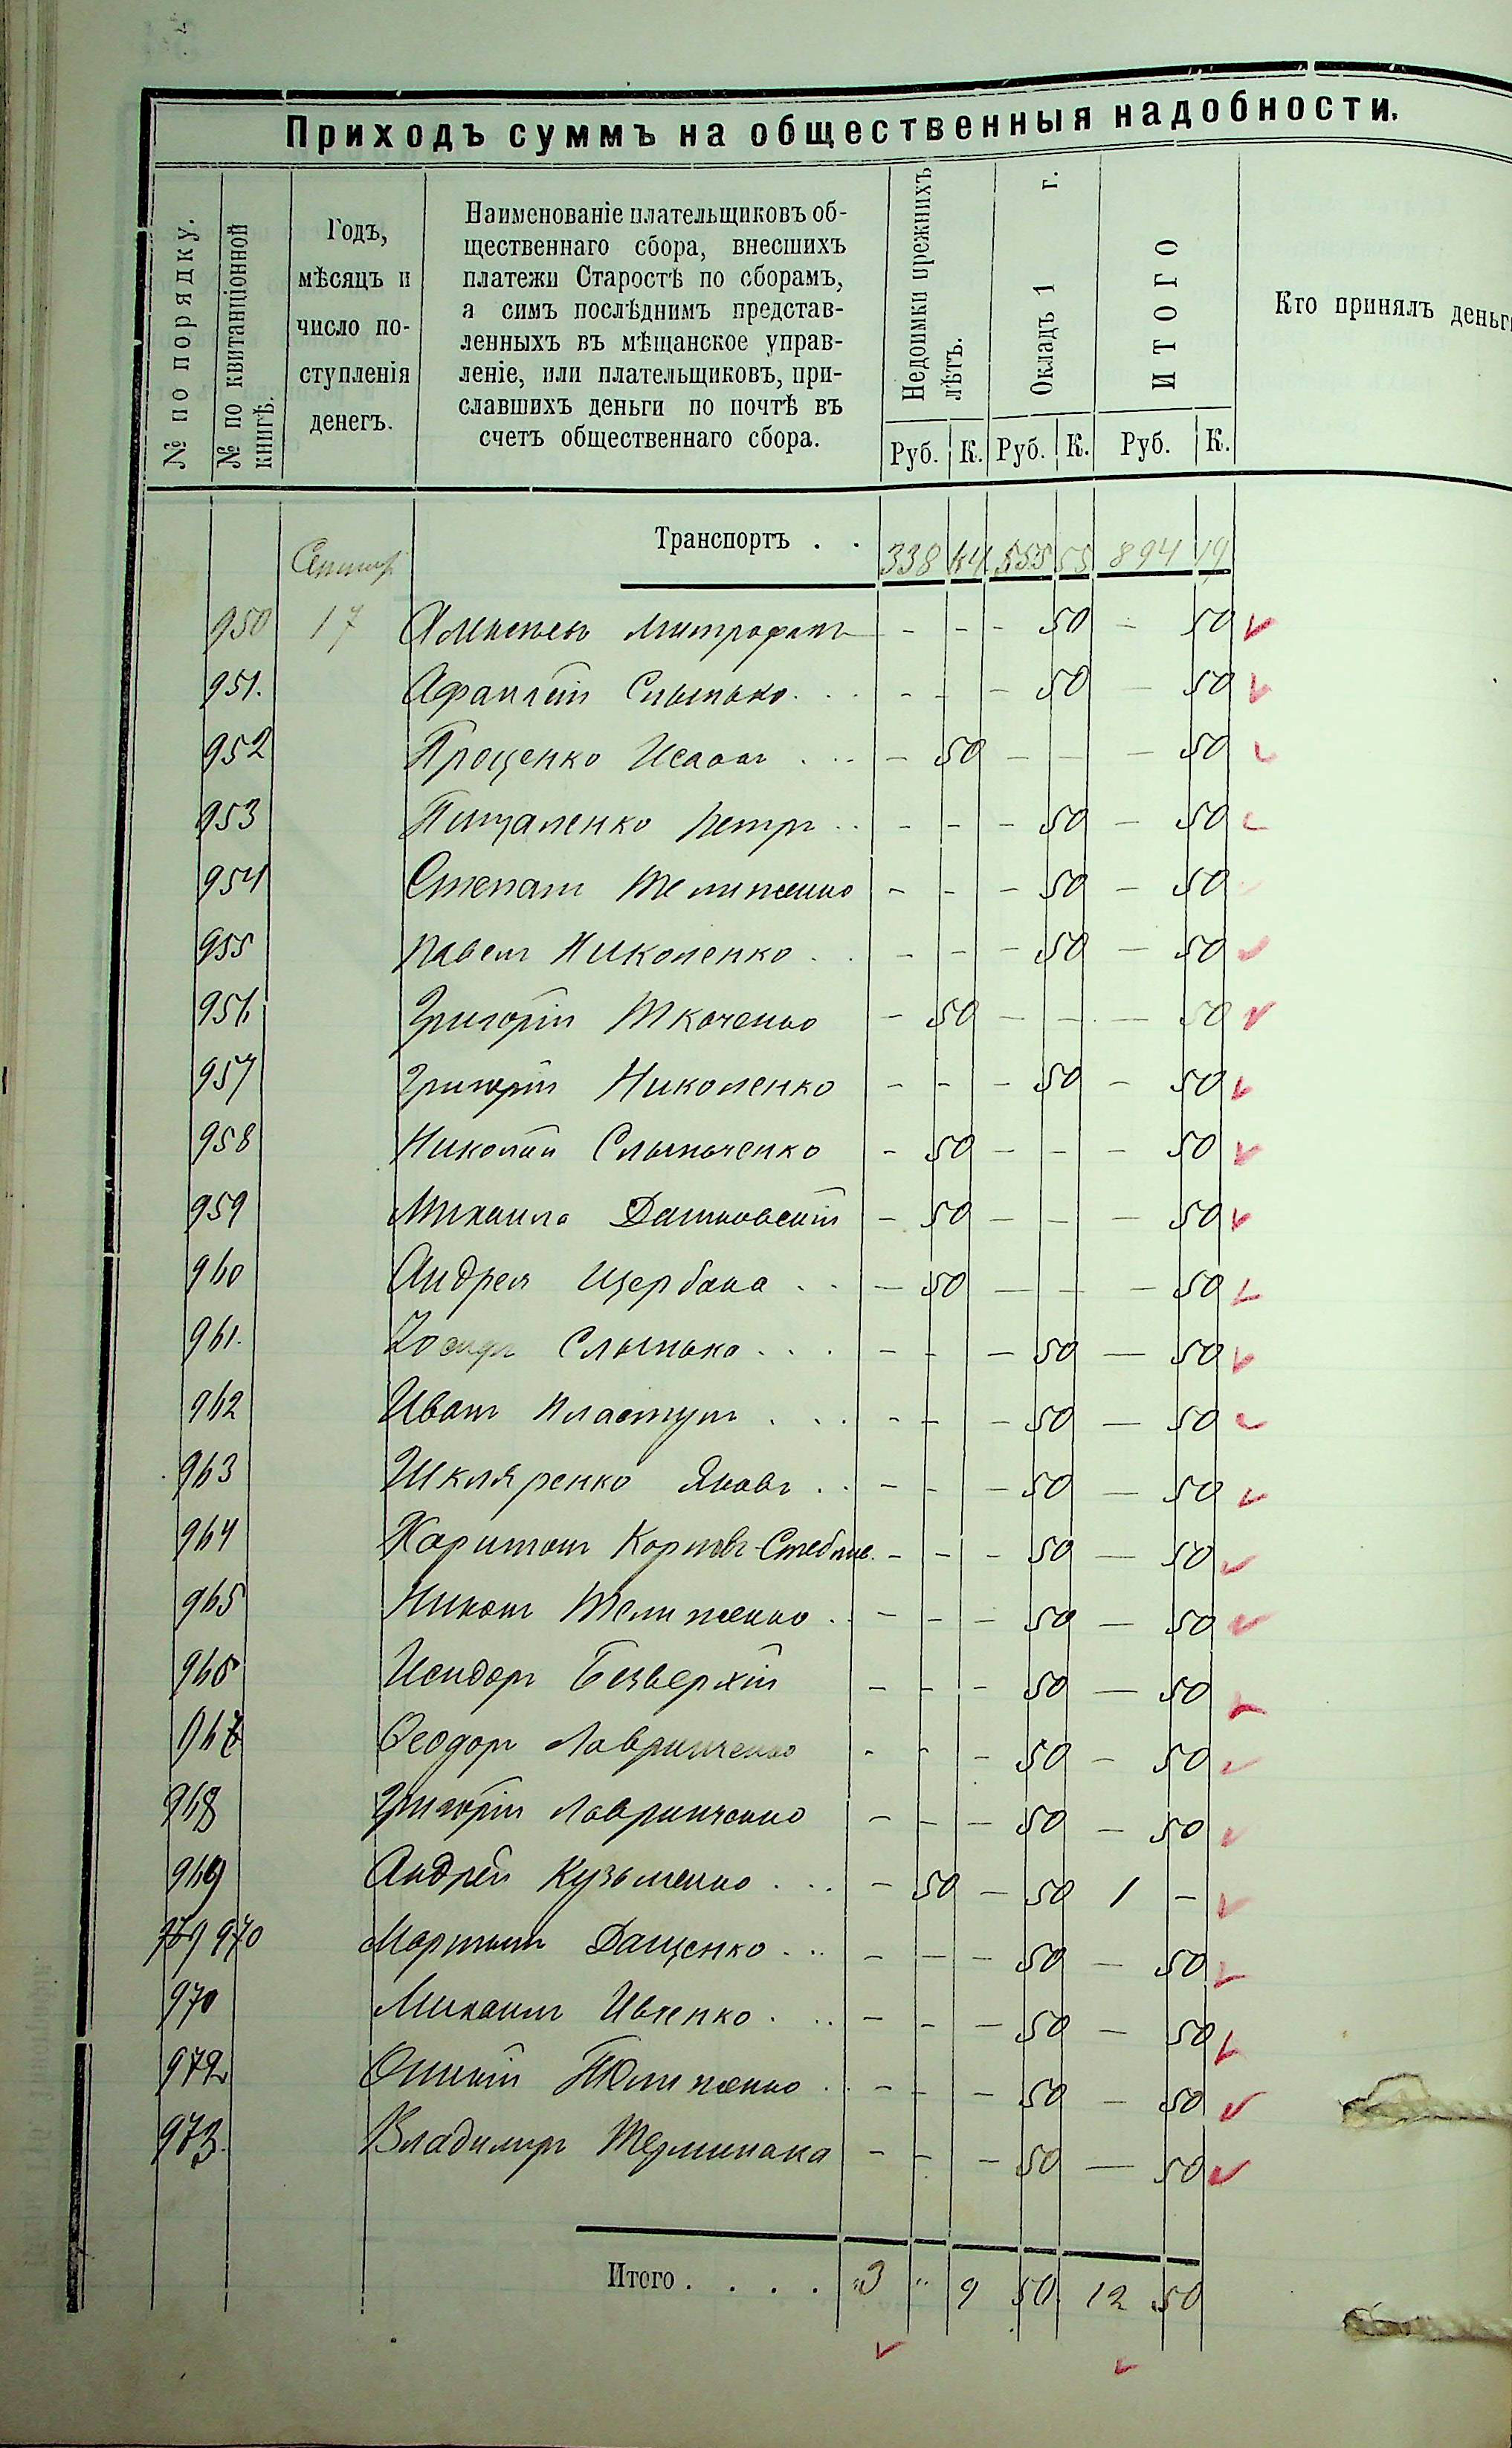 Приходъ суммъ на общественныя надобности.
№ по порядку.
№ по квитанціонной
книгѣ.
Годъ,
мѣсяцъ и
число по-
ступленія
денегъ.
Наименованіе плательщиковъ об-
щественнаго сбора, внесшихъ
платежи Старостѣ по сборамъ,
а симъ послѣднимъ представ-
ленныхъ въ мѣщанское управ-
леніе, или плательщиковъ, при-
славшихъ деньги по почтѣ въ
счетъ общественнаго сбора.
Недоимки прежнихъ
лѣтъ.
Окладъ 1 г.
ИТОГО
Кто принялъ деньг
Руб. К. Руб. К. Руб. К.
Транспортъ . . 338 64 555 55 894 19
950 17 Митрофанъ - - - 50 - 50
951. Слынько. . . - - - 50 - 50
952 Проценко Исаакъ . . . - 50 - - - 50
953 Пищаленко Петръ . . - - - 50 - 50
954 Степанъ Телиженко - - - 50 - 50
955 Павелъ Николенко . . - - - 50 - 50
956 Григорій Ткаченко - 50 - - - 50
957 Григорій Николенко - - - 50 - 50
958 Николай Слынченко - 50 - - - 50
959 Михаила Дашковскій - 50 - - - 50
960 Андрея Щербака . . - 50 - - - 50
961. Слынько . . . - - - 50 - 50
962 Иванъ Пластунъ . . . - - - 50 - 50
963 Шкляренко Яковъ . . - - - 50 - 50
964 Харитонъ - - - 50 - 50
965 Никонъ Телиженко . . - - - 50 - 50
966 Исидоръ Безверхій - - - 50 - 50
967 Ѳеодоръ Лавринченко - - - 50 - 50
968 Григорій Лавринченко - - - 50 - 50
969 Андрей Кузьменко . . . - 50 - 50 1 -
970 Мартынъ Дащенко . . . - - - 50 - 50
970 Михаилъ Ивченко . . . - - - 50 - 50
972 Телиженко . . - - - 50 - 50
973. Владимиръ - - - 50 - 50
Итого . . . . „3 „ 9 50 12 50